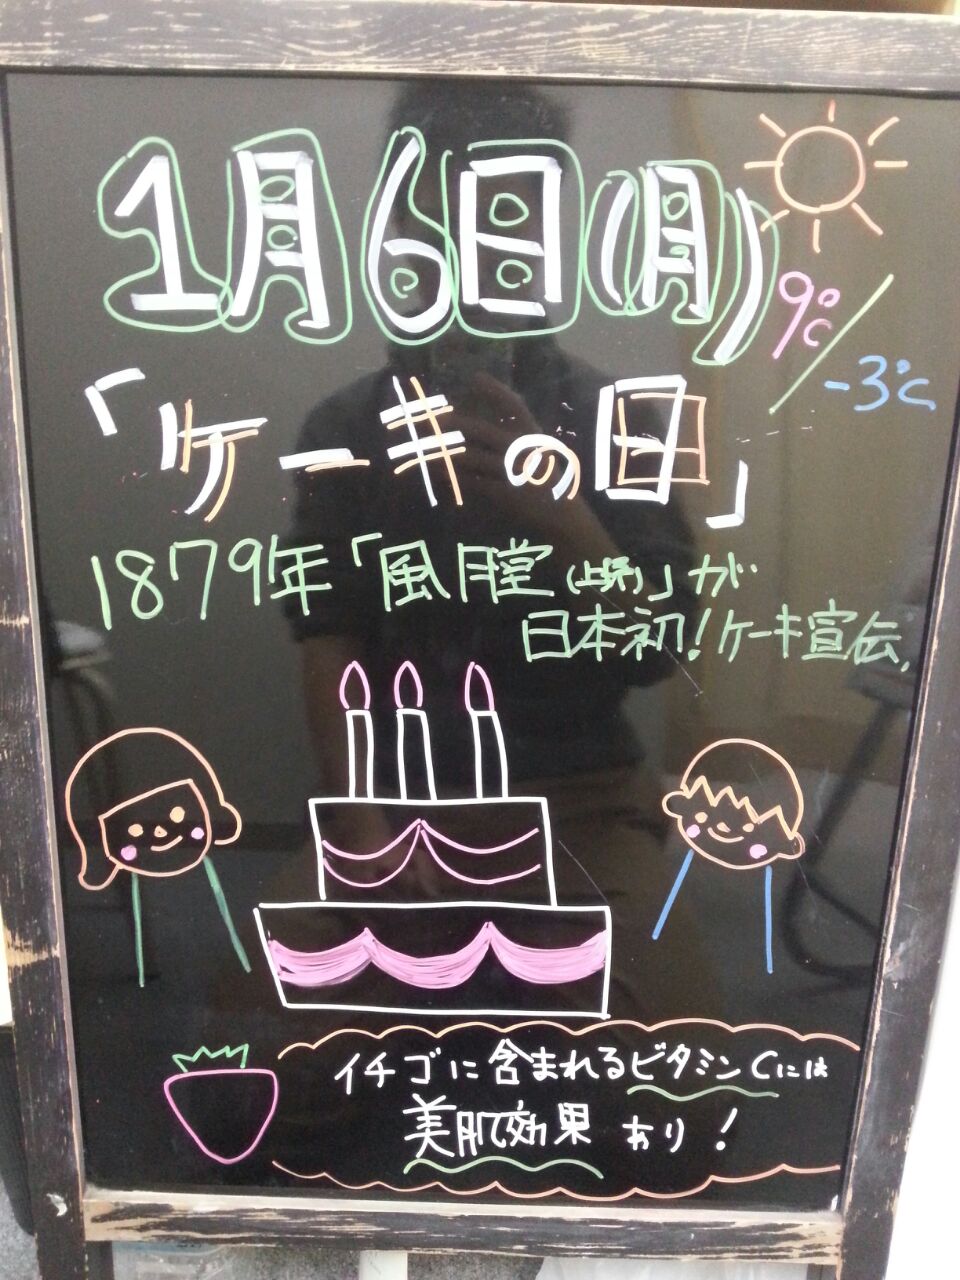 1月6日(月)
9℃/-3℃
「ケーキの日」
1879年「風月堂(上野)」が
日本初!ケーキ宣伝
イチゴに含まれるビタミンCには
美肌効果あり!